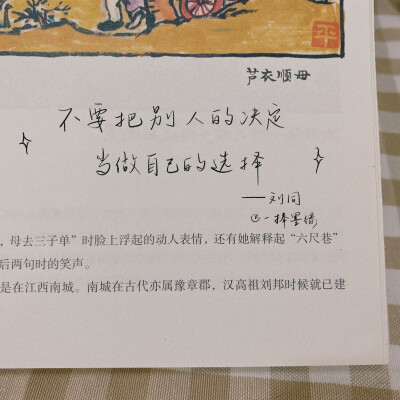 芦衣顺母
不要把别人的决定
当做自己的选择
——刘同
，母去三子单”时脸上浮起的动人表情，还有她解释起“六尺巷”
后两句时的笑声。
是在江西南城。南城在古代亦属豫章郡，汉高祖刘邦时候就已建